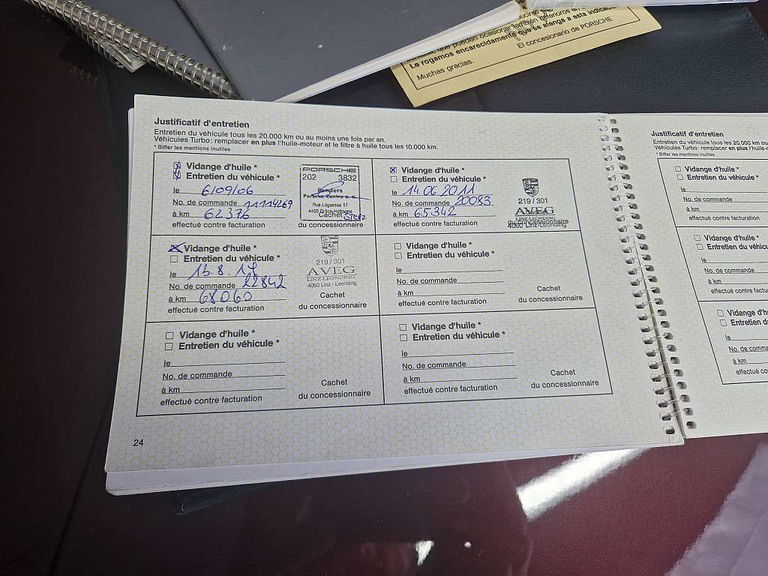 que pueden ocasionar también deterioros en
Le rogamos encarecidamente que se atenga a esta indica
Muchas gracias.
El concesionario de PORSCHE
Justificatif d'entretien
Entretien du véhicule tous les 20.000 km ou au moins une fois par an.
Véhicules Turbo: remplacer en plus l'huile-moteur et le filtre à huile tous les 10.000 km.
* Biffer les mentions inutiles
Vidange d'huile *
Entretien du véhicule *
le 6/09/06
No. de commande 11114269
à km 62376
effectué contre facturation
PORSCHE
202 3832
Porsche Centre
Cachet
du concessionnaire
Vidange d'huile *
Entretien du véhicule *
le 14.06.2011
No. de commande 20083
à km 65342
effectué contre facturation
219 / 301
AVEG
LINZ-LEONDING
4060 Linz-Leonding
du concessionnaire
Vidange d'huile *
Entretien du véhicule *
le 16.8.17
No. de commande 22842
à km 68060
effectué contre facturation
219 / 301
AVEG
LINZ-LEONDING
4060 Linz - Leonding
Cachet
du concessionnaire
Vidange d'huile *
Entretien du véhicule *
le
No. de commande
à km
effectué contre facturation
Cachet
du concessionnaire
Vidange d'huile *
Entretien du véhicule *
le
No. de commande
à km
effectué contre facturation
Cachet
du concessionnaire
Vidange d'huile *
Entretien du véhicule *
le
No. de commande
à km
effectué contre facturation
Cachet
du concessionnaire
24
Justificatif d'entretien
Entretien du véhicule tous les 20.0
Véhicules Turbo: remplacer en plus
* Biffer les mentions inutiles
Vidange d'huile
Entretien du véh
le
No. de commande
à km
effectué contre fact
Vidange d'huil
Entretien du v
le
No. de comma
à km
effectué contre
Vidange d'
Entretien d
le
No. de co
à km
effectué c